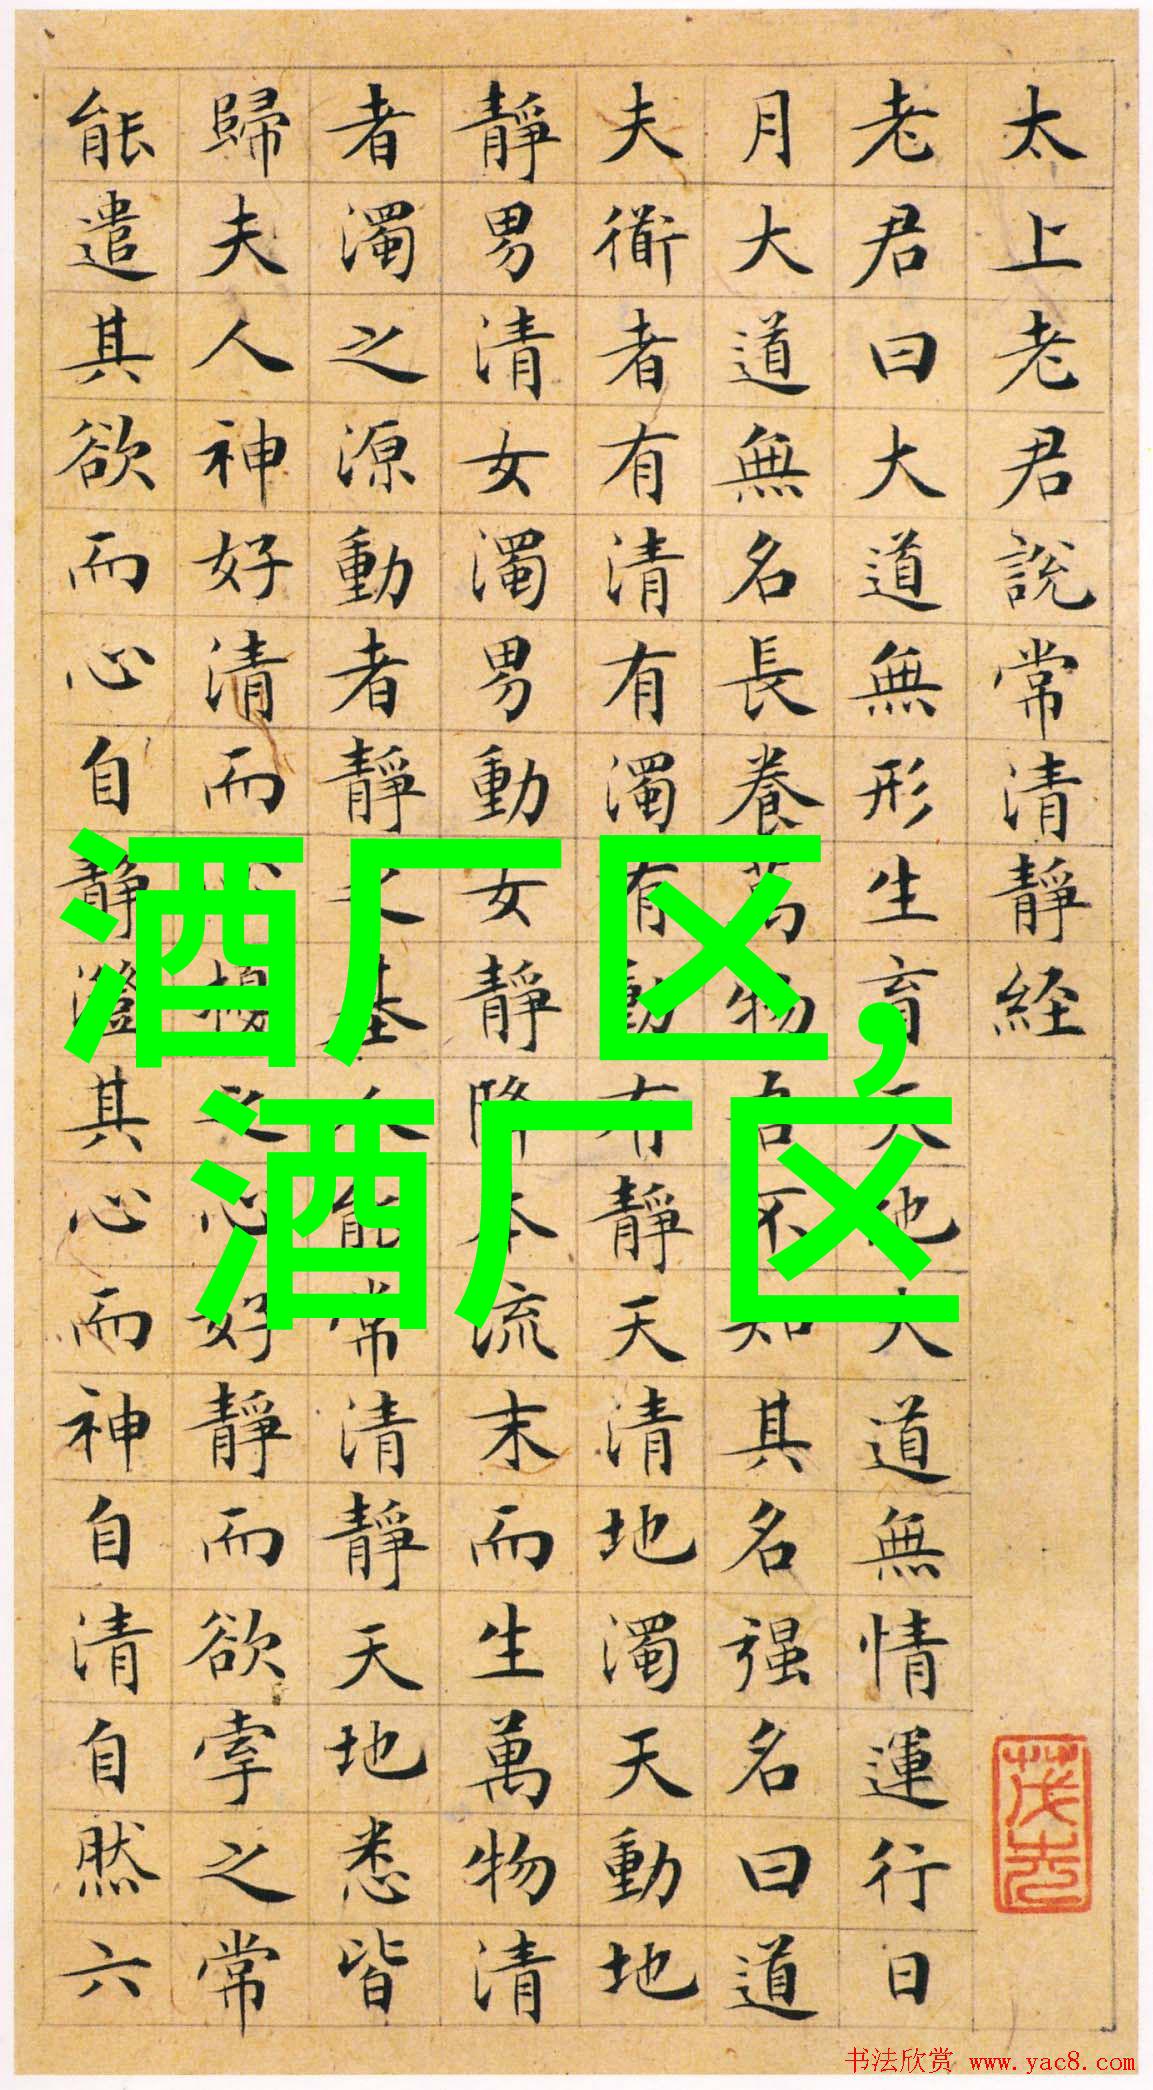 太上老君說常清靜経
老君曰大道無形生育天地大道無情運行日
月大道無名長養萬物吾不知其名强名曰道
夫衜者有清有濁有動有靜天清地濁天動地
靜男清女濁男動女靜降本流末而生萬物清
者濁之源動者靜之基人能常清靜天地悉皆
歸夫人神好清而心擾之心好靜而欲牽之常
能遣其欲而心自静澄其心而神自清自然六
酒厂区,
酒厂区
书法欣赏 www.yac8.com